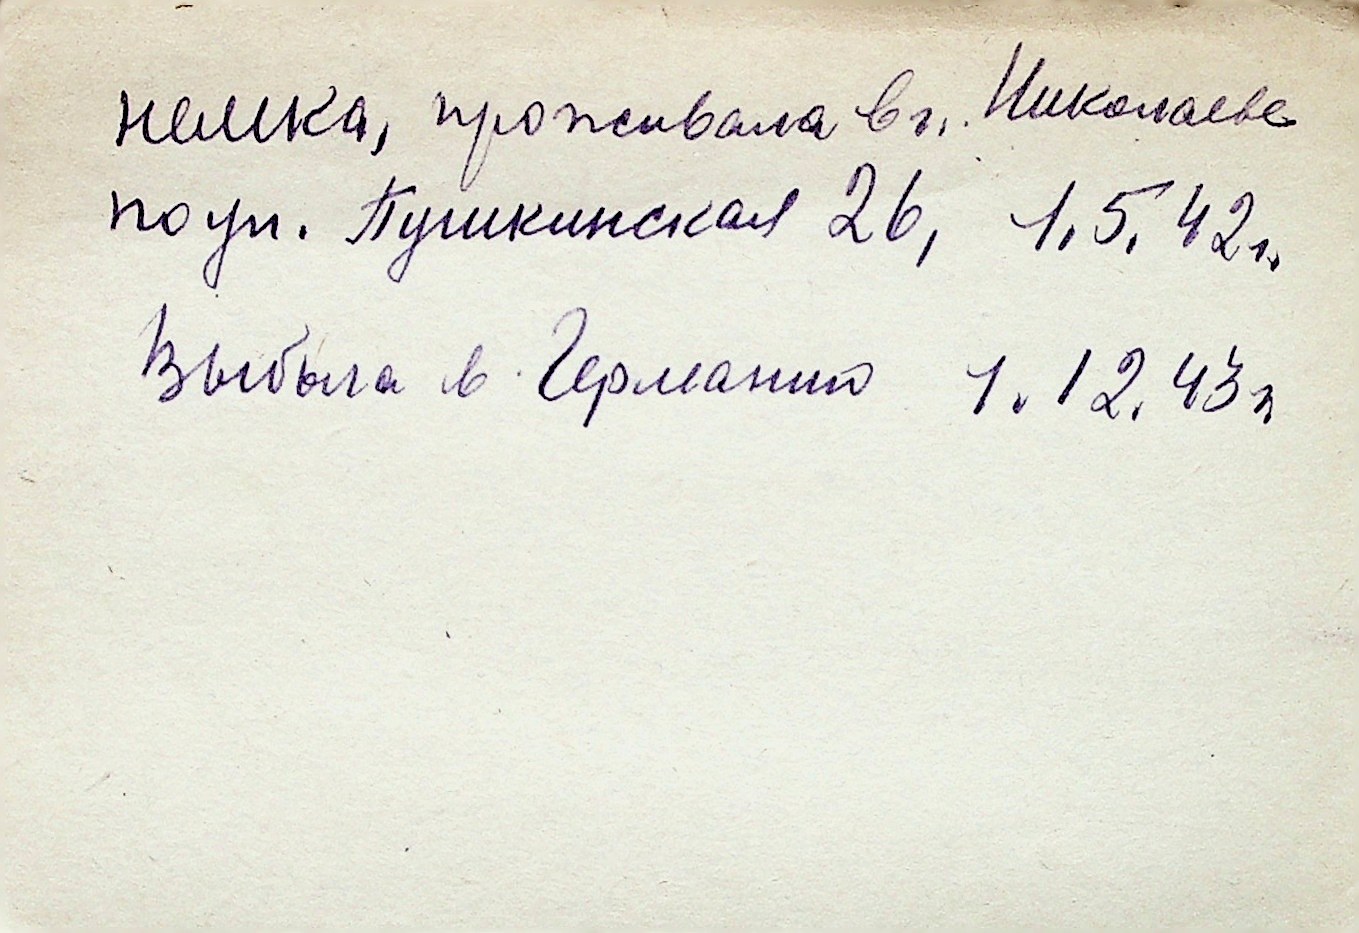 немка, проживала в г. Николаеве
по ул. Пушкинская 26, 1.5.42г.
Выбыла в Германию 1.12.43г